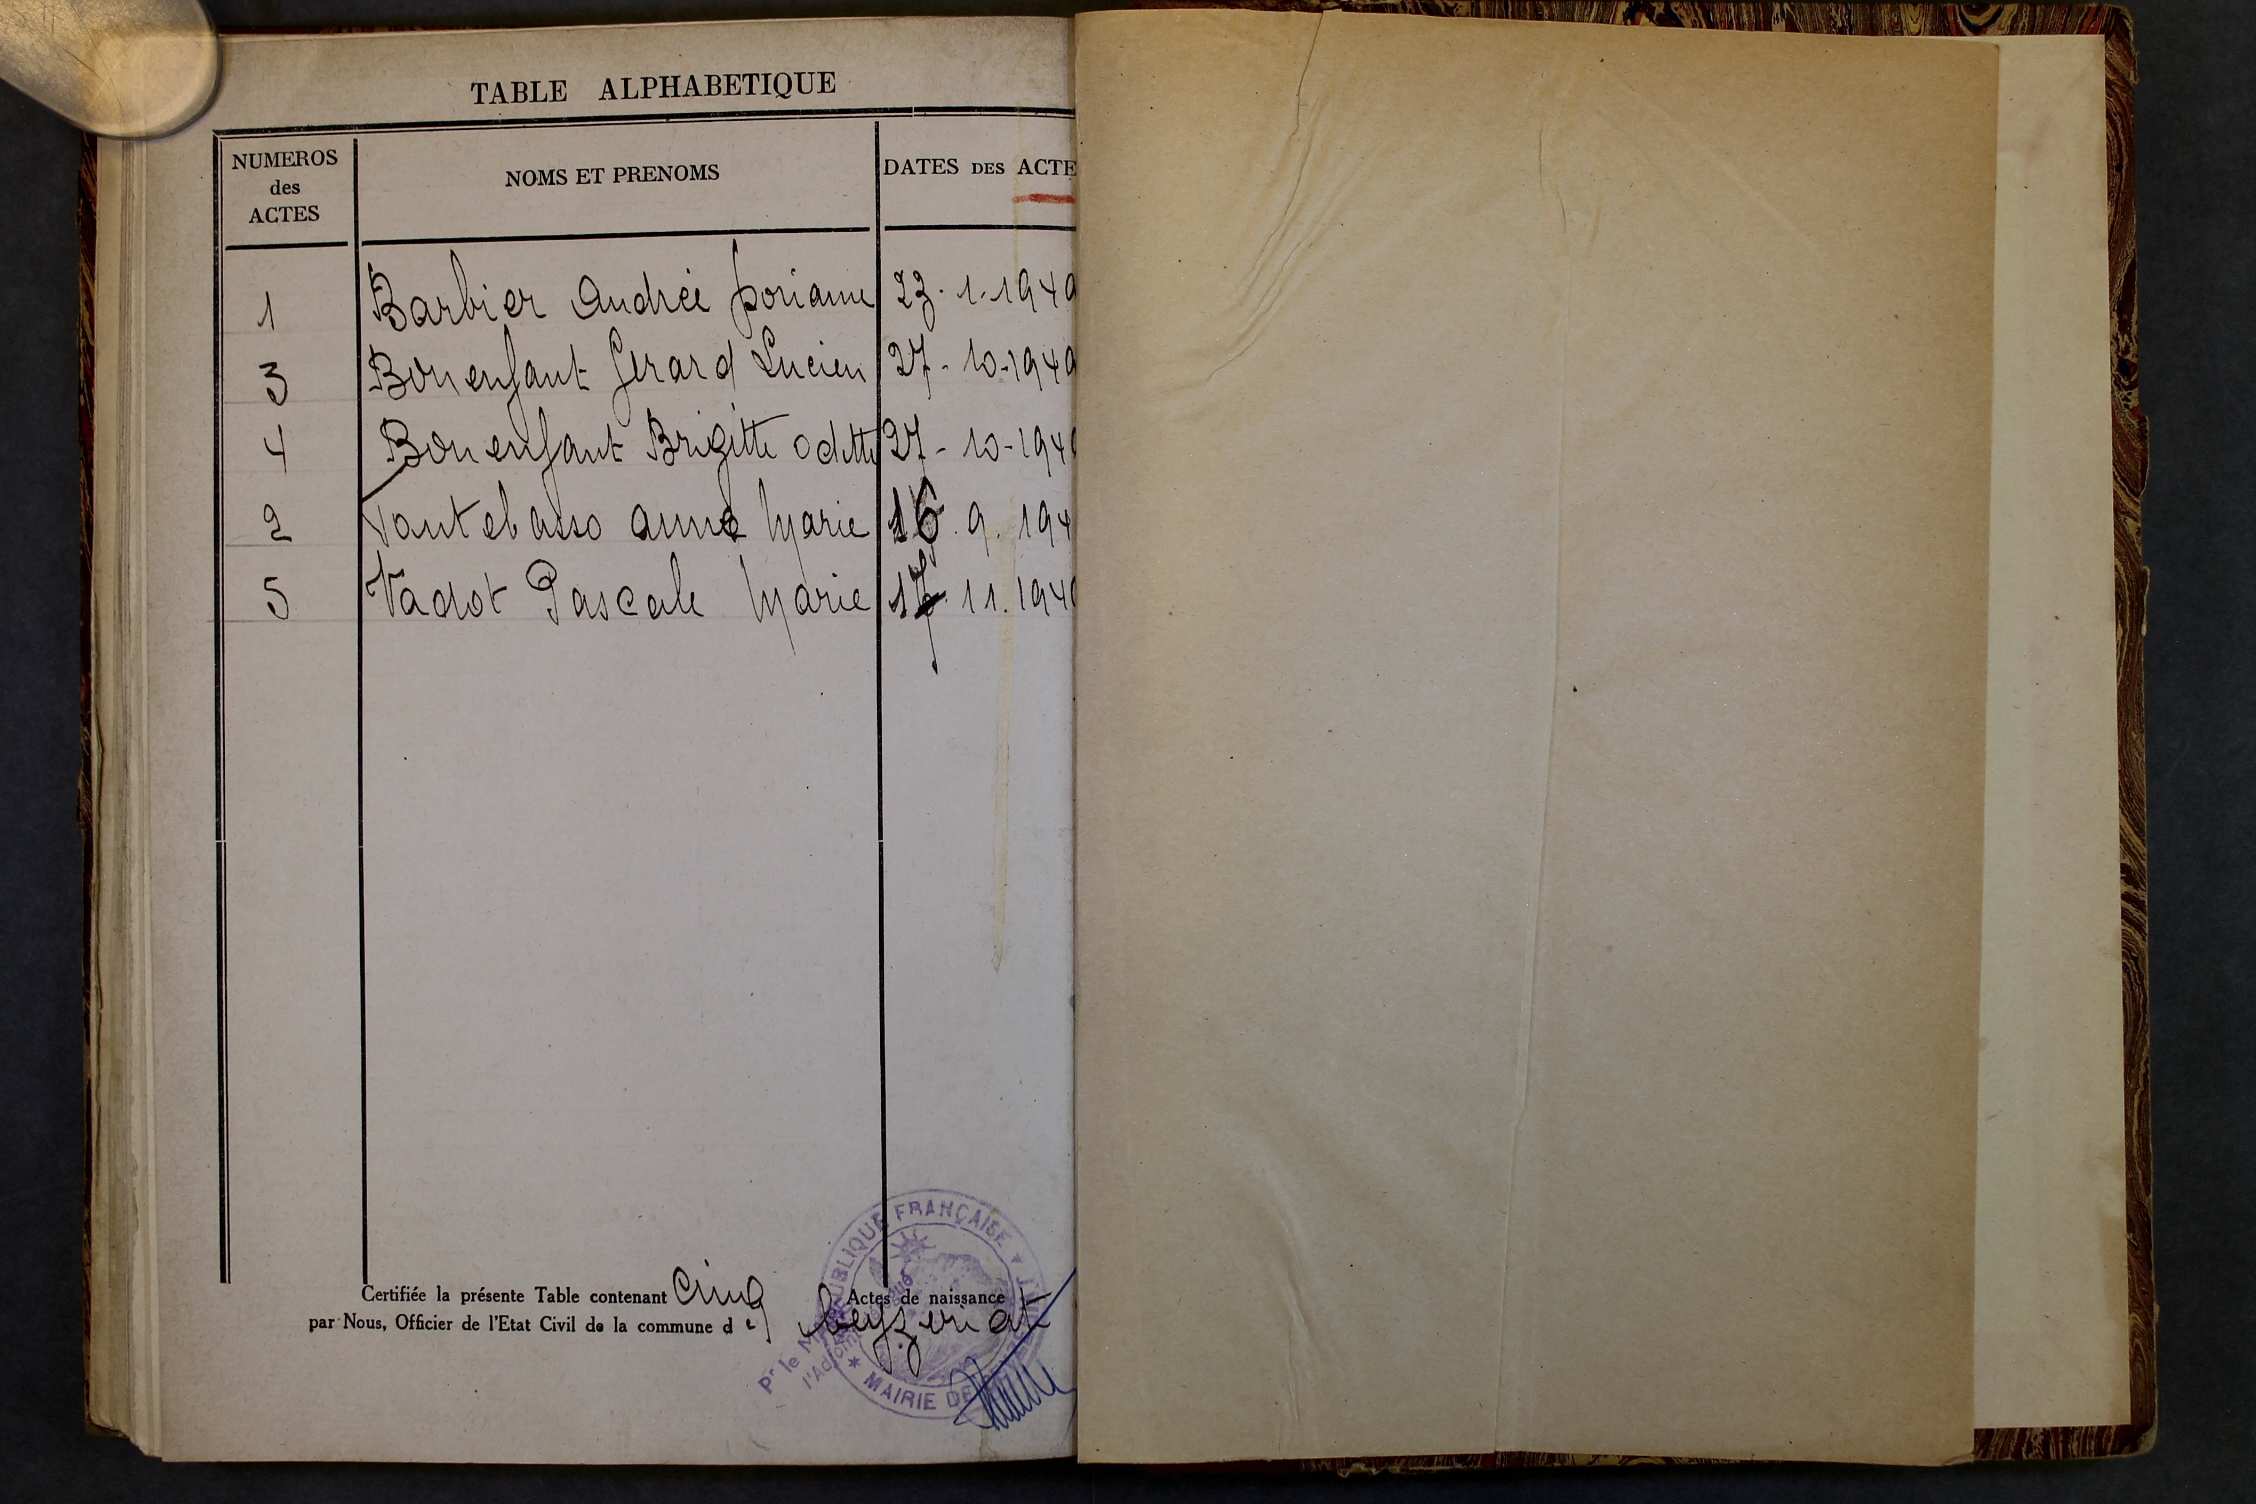 TABLE ALPHABETIQUE
NUMEROS
des
ACTES
NOMS ET PRENOMS
DATES DES ACTE
1 Barbier Andrée 23. 1. 1949
3 Bonenfant Gerard Lucien 27 - 10 - 1949
4 Bonenfant Brigitte Odette 27 - 10 - 194
2 anne Marie 16. 9. 194
5 Vadot Pascale Marie 17. 11. 194
Certifiée la présente Table contenant cinq Actes de naissance
par Nous, Officier de l'Etat Civil de la commune de Ceyzeriat
RÉPUBLIQUE FRANÇAISE
MAIRIE DE
Pr le M
l'Adjoint